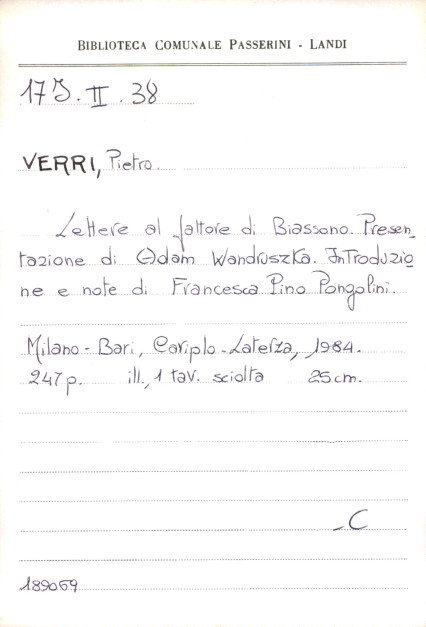 BIBLIOTECA COMUNALE PASSERINI - LANDI
17J.II.38
VERRI, Pietro.
Lettere al fattore di Biassono. Presen_
tazione di Adam Wandruszka. Introduzio
ne e note di Francesca Pino Pongolini.
Milano - Bari, Cariplo - Laterza, 1984.
247 p. ill., 1 tav. sciolta 25 cm.
_C
189069